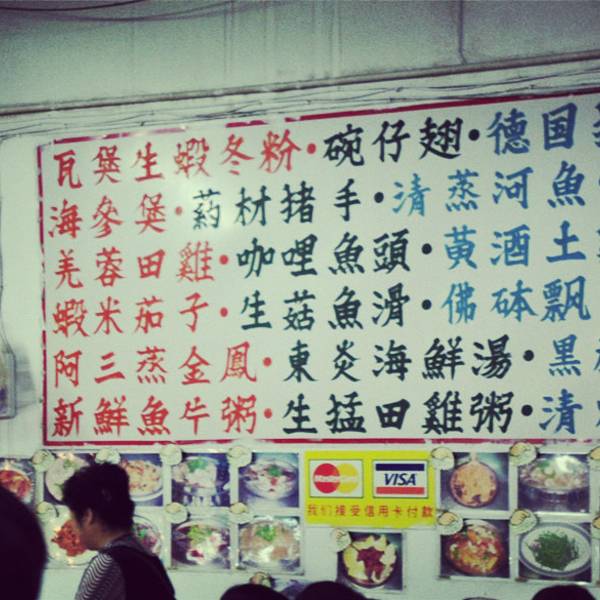 瓦煲生蝦冬粉•碗仔翅•德国
海參煲•葯材猪手•清蒸河魚
羌蓉田雞•咖哩魚頭•黄酒土
蝦米茄子•生菇魚滑•佛砵飘
阿三蒸金鳳•東炎海鮮湯•黑
新鮮魚片粥•生猛田雞粥•清
MasterCard VISA
我们接受信用卡付款